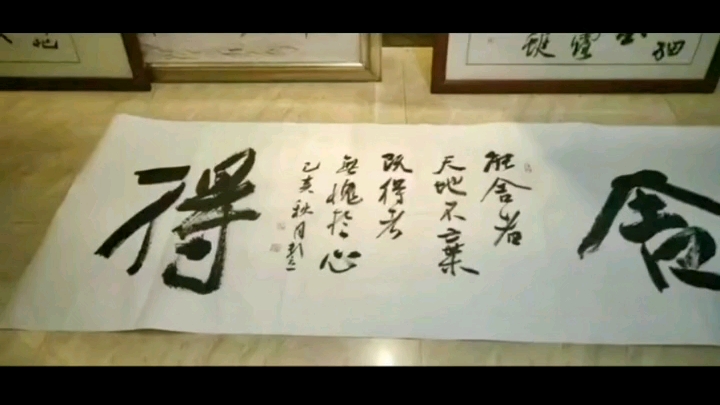 舍
能舍者
天地不棄
既得者
無愧於心
己亥秋月
得